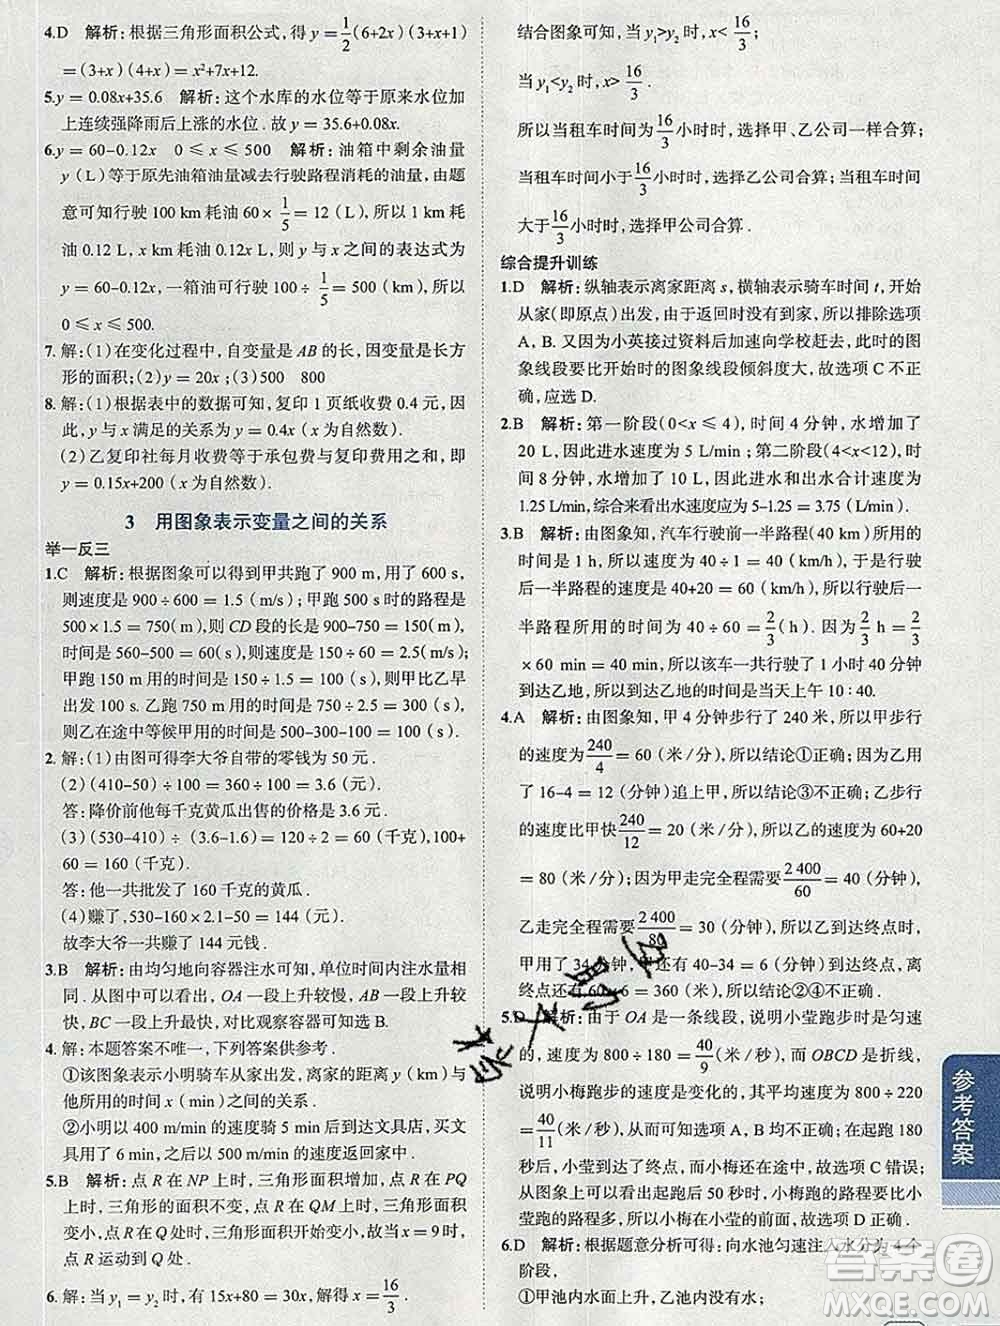 4.D 解析:根据三角形面积公式,得 y=1/2(6+2x)(3+x+1)
=(3+x)(4+x)=x²+7x+12.
5.y=0.08x+35.6 解析:这个水库的水位等于原来水位加
上连续强降雨后上涨的水位.故 y=35.6+0.08x.
6.y=60-0.12x 0≤x≤500 解析:油箱中剩余油量
y(L)等于原先油箱油量减去行驶路程消耗的油量,由题
意可知行驶 100 km 耗油 60×1/5=12(L),所以 1 km 耗
油 0.12 L,x km 耗油 0.12x L,则 y 与 x 之间的表达式为
y=60-0.12x,一箱油可行驶 100÷1/5=500(km),所以
0≤x≤500.
7.解:(1)在变化过程中,自变量是 AB 的长,因变量是长方
形的面积;(2)y=20x;(3)500 800
8.解:(1)根据表中的数据可知,复印 1 页纸收费 0.4 元,因
此,y 与 x 满足的关系为 y=0.4x(x 为自然数).
(2)乙复印社每月收费等于承包费与复印费用之和,即
y=0.15x+200(x 为自然数).
3 用图象表示变量之间的关系
举一反三
1.C 解析:根据图象可以得到甲共跑了 900 m,用了 600 s,
则速度是 900÷600=1.5(m/s);甲跑 500 s 时的路程是
500×1.5=750(m),则 CD 段的长是 900-750=150(m),
时间是 560-500=60(s),则速度是 150÷60=2.5(m/s);
甲跑 150 m 用的时间是 150÷1.5=100(s),则甲比乙早
出发 100 s.乙跑 750 m 用的时间是 750÷2.5=300(s),
则乙在途中等候甲用的时间是 500-300-100=100(s).
2.解:(1)由图可得李大爷自带的零钱为 50 元.
(2)(410-50)÷100=360÷100=3.6(元).
答:降价前他每千克黄瓜出售的价格是 3.6 元.
(3)(530-410)÷(3.6-1.6)=120÷2=60(千克),100+
60=160(千克).
答:他一共批发了 160 千克的黄瓜.
(4)赚了,530-160×2.1-50=144(元).
故李大爷一共赚了 144 元钱.
3.B 解析:由均匀地向容器注水可知,单位时间内注水量相
同.从图中可以看出,OA 一段上升较慢,AB 一段上升较
快,BC 一段上升最快,对比观察容器可知选 B.
4.解:本题答案不唯一,下列答案供参考.
①该图象表示小明骑车从家出发,离家的距离 y(km)与
他所用的时间 x(min)之间的关系.
②小明以 400 m/min 的速度骑 5 min 后到达文具店,买文
具用了 6 min,之后以相同的速度返回家中.
5.B 解析:点 R 在 NP 上时,三角形面积增加,点 R 在 PQ
上时,三角形的面积不变,点 R 在 QM 上时,三角形面积
变小,点 R 在 Q 处,三角形面积开始变小.故选当 x=9 时,
点 R 运动到 Q 处.
6.解:当 y₁=y₂ 时,有 15x+80=30x,解得 x=16/3.
结合图象可知,当 y₁>y₂ 时,x<16/3;
当 y₁<y₂ 时,x>16/3.
所以当租车时间为16/3小时时,选择甲、乙公司一样合算;
当租车时间小于16/3小时时,选择乙公司合算;当租车时间
大于16/3小时时,选择甲公司合算.
综合提升训练
1.D 解析:纵轴表示离家距离 s,横轴表示骑车时间 t,开始
从家(即原点)出发,由于返回时没有到家,所以排除选项
A,B.又因为小英接过资料后加速向学校赶去,此时的图
象线段要比开始时的图象线段倾斜度大,故选项 C 不正
确,应选 D.
2.B 解析:第一阶段(0<x≤4),时间 4 分钟,水增加了
20 L,因此进水速度为 5 L/min;第二阶段(4<x<12),时
间 8 分钟,水增加了 10 L,因此进水和出水合计速度为
1.25 L/min,综合来看出水速度应为 5-1.25=3.75(L/min).
3.B 解析:由图象知,汽车行驶前一半路程(40 km)所用的
时间是 1 h,所以速度为 40÷1=40(km/h),于是行驶后
一半路程的速度是 40+20=60(km/h),所以行驶后一
半路程所用的时间为 40÷60=2/3(h).因为2/3 h=2/3
×60 min=40 min,所以该车一共行驶了 1 小时 40 分钟
到达乙地,所以到达乙地的时间是当天上午 10:40.
4.A 解析:由图象知,甲 4 分钟步行了 240 米,所以甲步行
的速度为240/4=60(米/分),所以结论①正确;因为乙用
了 16-4=12(分钟)追上甲,所以结论③不正确;乙步行
的速度比甲快240/12=20(米/分),所以乙的速度为 60+20
=80(米/分),因为甲走完全程需要2 400/60=40(分钟),
乙走完全程需要2 400/80=30(分钟),所以乙到达终点时,
甲用了 34 分钟,还有 40-34=6(分钟)到达终点,离
终点还有 60×6=360(米),所以结论②④不正确.
5.D 解析:由于 OA 是一条线段,说明小莹跑步时是匀速
的,速度为 800÷180=40/9(米/秒),而 OBCD 是折线,
说明小梅跑步的速度是变化的,其平均速度为 800÷220
=40/11(米/秒),故可知选项 A、B 均不正确;因为在起跑 180
秒后,小莹到达了终点,而小梅还在途中,故选项 C 错误;
从图象上可以看出起跑后 50 秒时,小梅的路程应比小
莹跑的路程多,所以小梅在小莹的前面,故选项 D 正确.
6.D 解析:根据题意分析可得:向水池匀速注入水分为 4 个
阶段,
①甲池内水面上升,乙池内没有水;
参考答案
答案圈
MXQE.COM